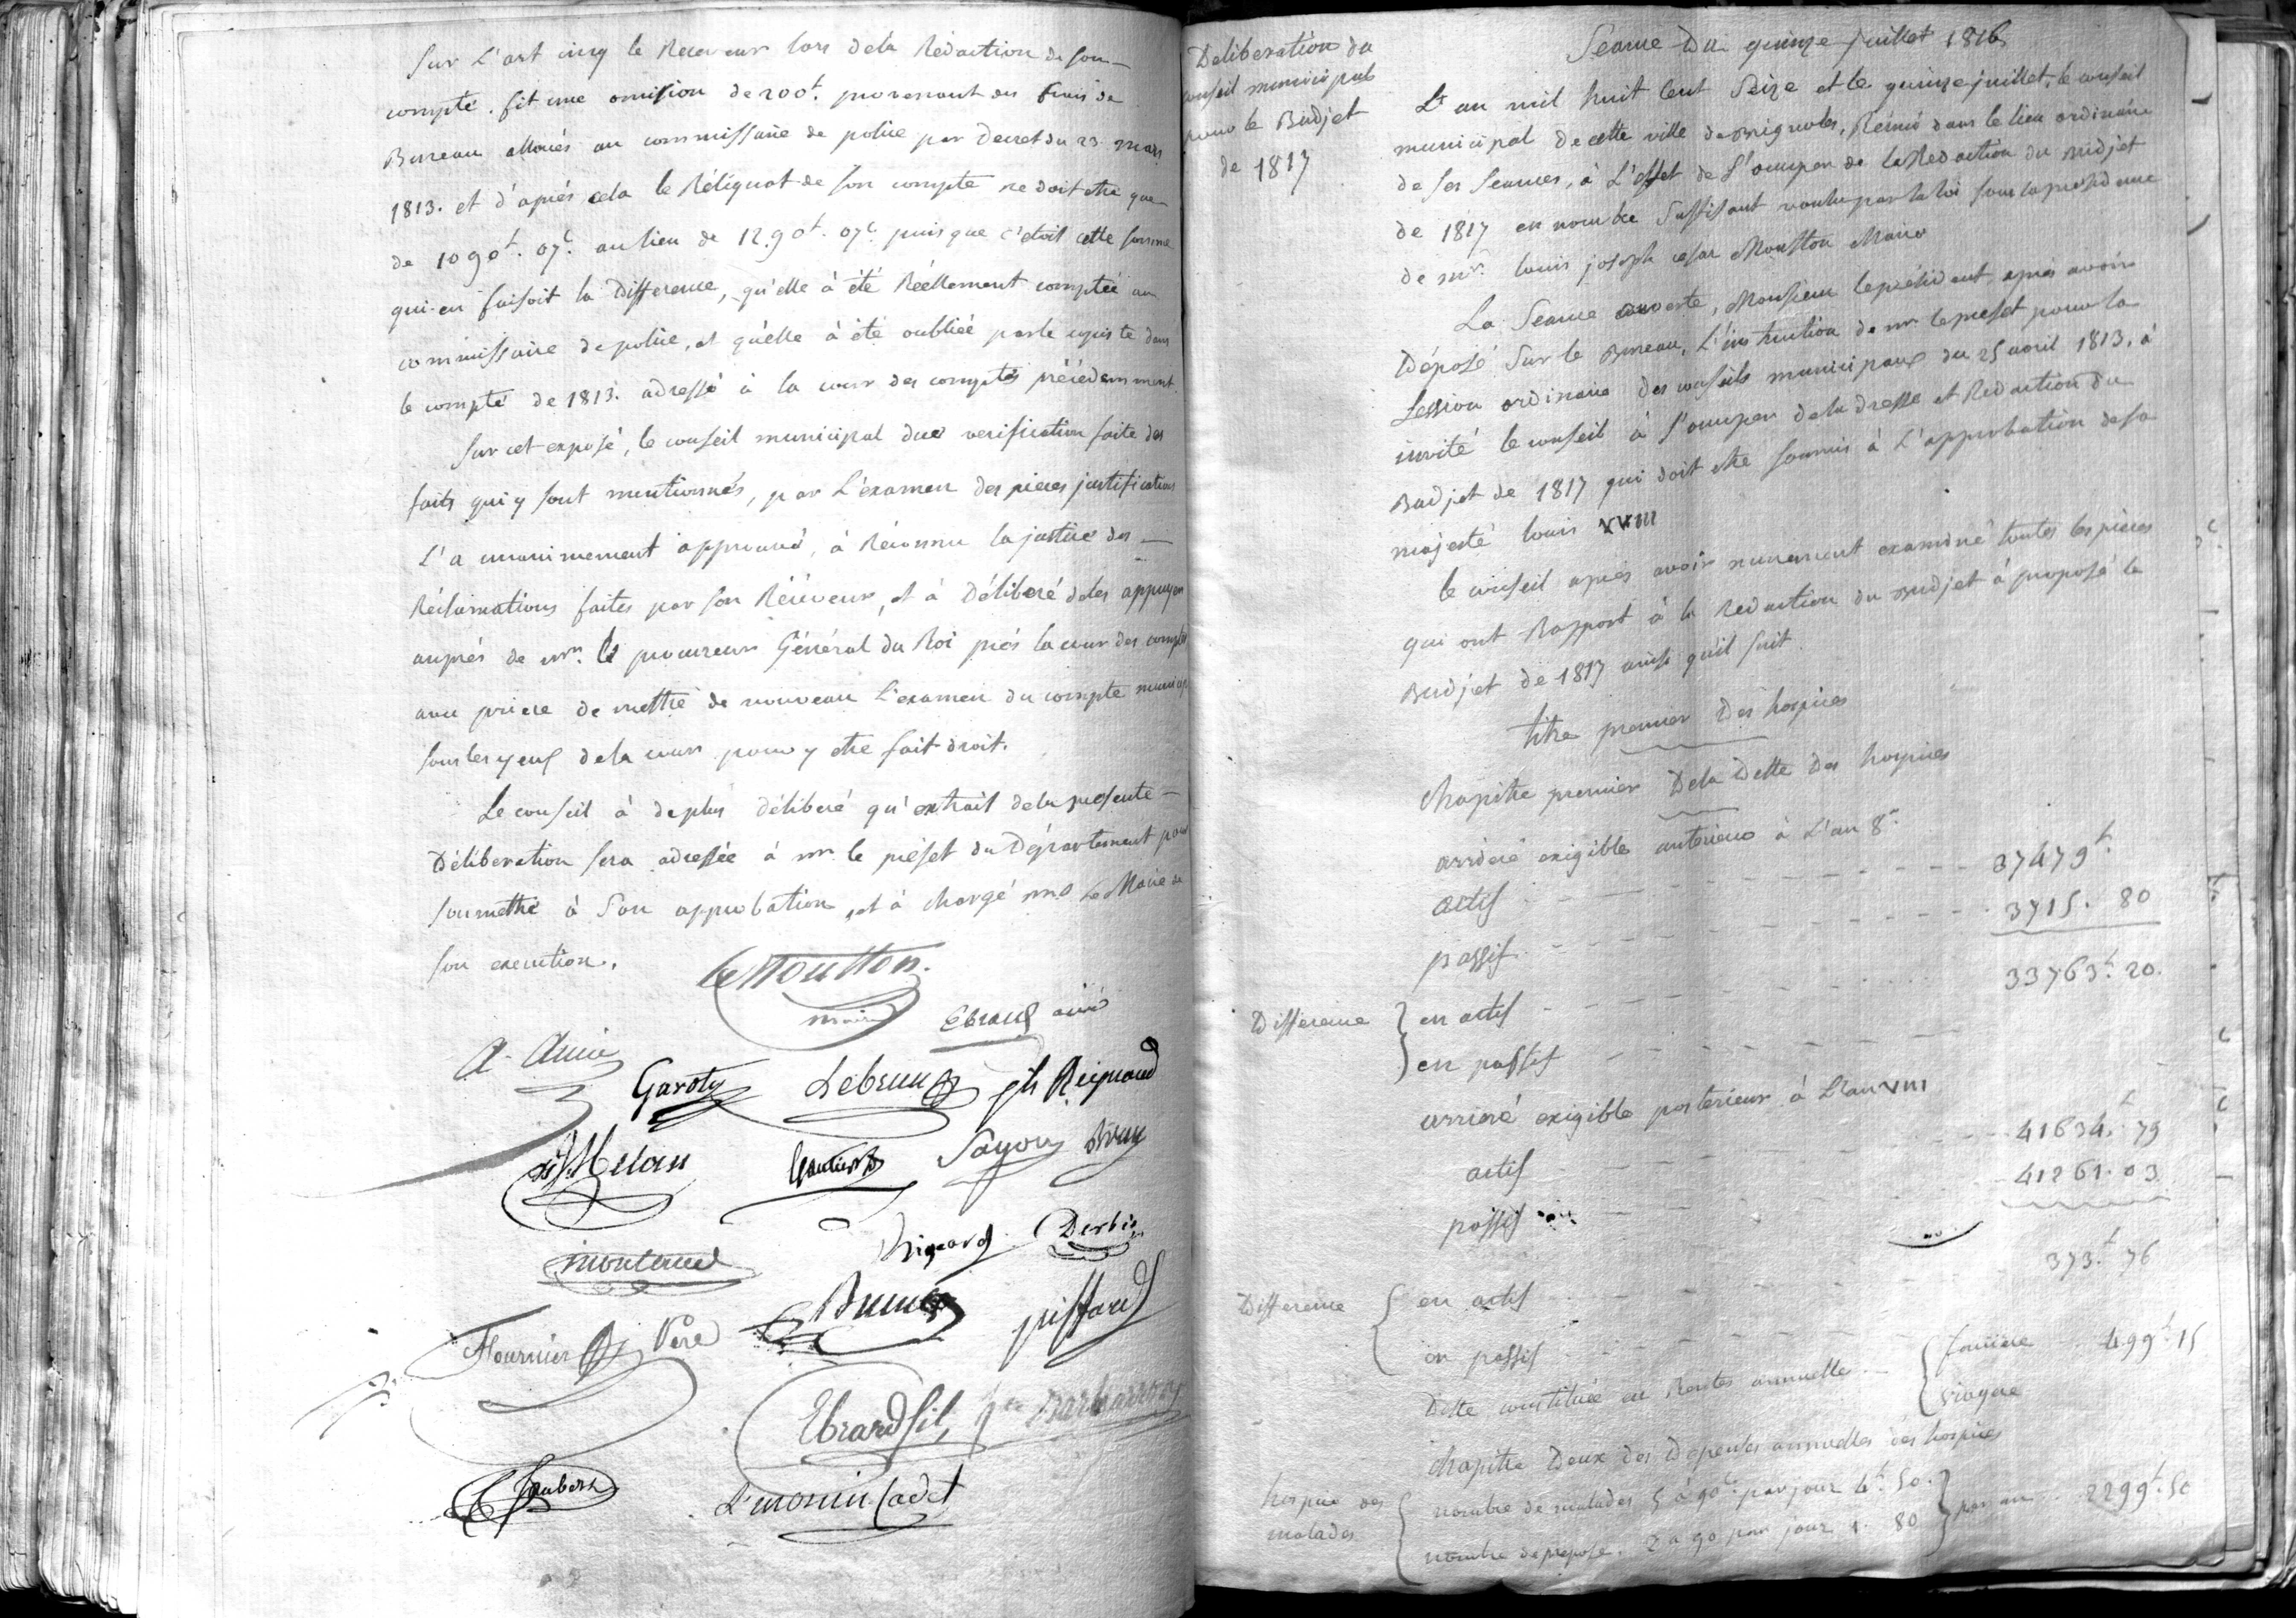 Sur L'art cinq le Receveur lors dela Rédaction de son
compte. fit une omission de 200ᵗ. provenant des frais de
Bureau alloués au commissaire de police par Decret du 23 mars
1813. et d'aprés cela le Réliquat de son compte ne doit etre que
de 1090ᵗ. 07ᶜ. au lieu de 1290ᵗ. 07ᶜ. puisque c'etoit cette somme
qui en faisoit la Difference, qu'elle à été Réellement comptée au
commissaire de police, et qu'elle à été oubliée par le copiste dans
le compte de 1813. adressé à la cour des comptes précédemment.
Sur cet exposé, le conseil municipal due verification faite des
faits qui y sont mentionnés, par L'examen des pieces justificatives
L'a unanimement approuvé, à Réconnu la justice des
Réclamations faites par son Réceveur, et à Déliberé deles appuyer
auprés de mr. le procureur Général du Roi prés la cour des comptes
avec priere de mettre de nouveau L'examen du compte
sous les yeux dela cour pour y etre fait droit.
Le conseil à deplus déliberé qu'extrait dela presente
Déliberation sera adressée à mr. le préfet du Département pour
soumettre à son approbation, et à chargé mr Le Maire de
son execution.
Le Moutton.
maire
Ebrard ainé
A. Amic
Garoty Lebrun fils Reignaud
Melan Gautier Sayou Brun
montaud Rigord Derbès
Brun piffard
Fournier Père
Ebrard fils, Barbaroux
Joubert
Lemonin Cadet
Déliberation du
conseil municipal
pour le Budjet
de 1817
Seance Du quinze juillet 1816
L'an mil huit cent Seize et le quinze juillet, le conseil
municipal de cette ville de Brignoles, Réuni dans le lieu ordinaire
de ses Seances, à L'effet de S'occuper de la Redaction du Budjet
de 1817 en nombre suffisant voulu par la loi sous la presidence
de mr. louis joseph cesar Moutton Maire
La Seance ouverte, Monsieur le président, aprés avoir
Déposé sur le Bureau, L'instruction de mr le prefet pour la
session ordinaire des conseils municipaux du 25 avril 1813, à
invité le conseil à S'occuper dela dresse et Redaction du
Budjet de 1817 qui doit etre soumis à L'approbation de sa
majesté louis XVIII
le conseil aprés avoir murement examiné toutes les pieces
qui ont Rapport à la Redaction du Budjet à proposé le
Budjet de 1817 ainsi qu'il suit
titre premier Des hospices
chapitre premier Dela Dette des hospices
arriéré exigible anterieur à L'an 8.
actif 37479ᵗ.
passif 3715. 80
33763ᵗ. 20.
Difference { en actif
en passif
arriéré exigible posterieur à L'an VIII
actif 41634ᵗ. 79
passif 41261. 03
373ᵗ. 76
Difference { en actif
en passif
Dette constituée en Rentes annuelle { fonciere 499ᵗ. 15
viagere
chapitre Deux des Depenses annuelles des hospices
hospice des
malades { nombre de malades 5 à 90ᶜ. par jour 4ᵗ. 50. } par an 2299ᵗ. 50
nombre de preposé. 2 à 90 par jour 1. 80